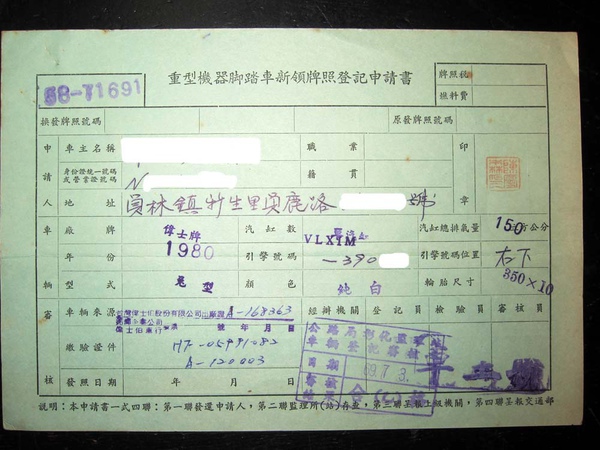 重型機器脚踏車新領牌照登記申請書
牌照税
燃料費
58-71691
換發牌照號碼
原發牌照號碼
申請人
車主名稱
職業
印章
身份證統一號碼
或營業證號碼
N
籍貫
地址
員林鎮新生里員鹿路
號
車輛
廠牌
偉士牌
汽缸數
單汽缸
汽缸總排氣量
150立方公分
年份
1980
引擎號碼
VLXIM
-390
引擎號碼位置
右下
型式
兎型
顏色
純白
輪胎尺寸
350×10
審核
車輛來源
台灣偉士伯股份有限公司出廠證
A-168363
號 年 月 日
經辦機關
登記員
檢驗員
審核員
繳驗證件
HF-05991082
A-120003
公路局彰化監理站
車輛登記審核
日期
69.7.3.
審核
結果
合
發照日期
年 月 日
說明：本申請書一式四聯：第一聯發還申請人，第二聯監理所(站)存查，第三聯呈報上級機關，第四聯呈報交通部